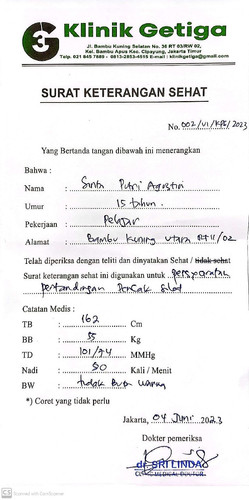 Klinik Getiga
Jl. Bambu Kuning Selatan No. 36 RT 03/RW 02,
Kel. Bambu Apus Kec. Cipayung, Jakarta Timur
Telp. 021 845 7889 - 0813-2853-4515 E-mail : klinikgetiga@gmail.com
SURAT KETERANGAN SEHAT
No. 002/VI/KPG/2023
Yang Bertanda tangan dibawah ini menerangkan
Bahwa :
Nama : Sinta Putri Agustin
Umur : 15 tahun.
Pekerjaan : Pelajar
Alamat : Bambu Kuning Utara RT 11/02
Telah diperiksa dengan teliti dan dinyatakan Sehat / tidak sehat
Surat keterangan sehat ini digunakan untuk : persyaratan
pertandingan Pencak Silat
Catatan Medis :
TB : 162 Cm
BB : 55 Kg
TD : 101/74 MMHg
Nadi : 90 Kali / Menit
BW : tidak buta warna
*) Coret yang tidak perlu
Jakarta, 04 Juni 2023
Dokter pemeriksa
dr. SRI LINDA
CLINIC MEDICAL DOCTOR
CS Scanned with CamScanner